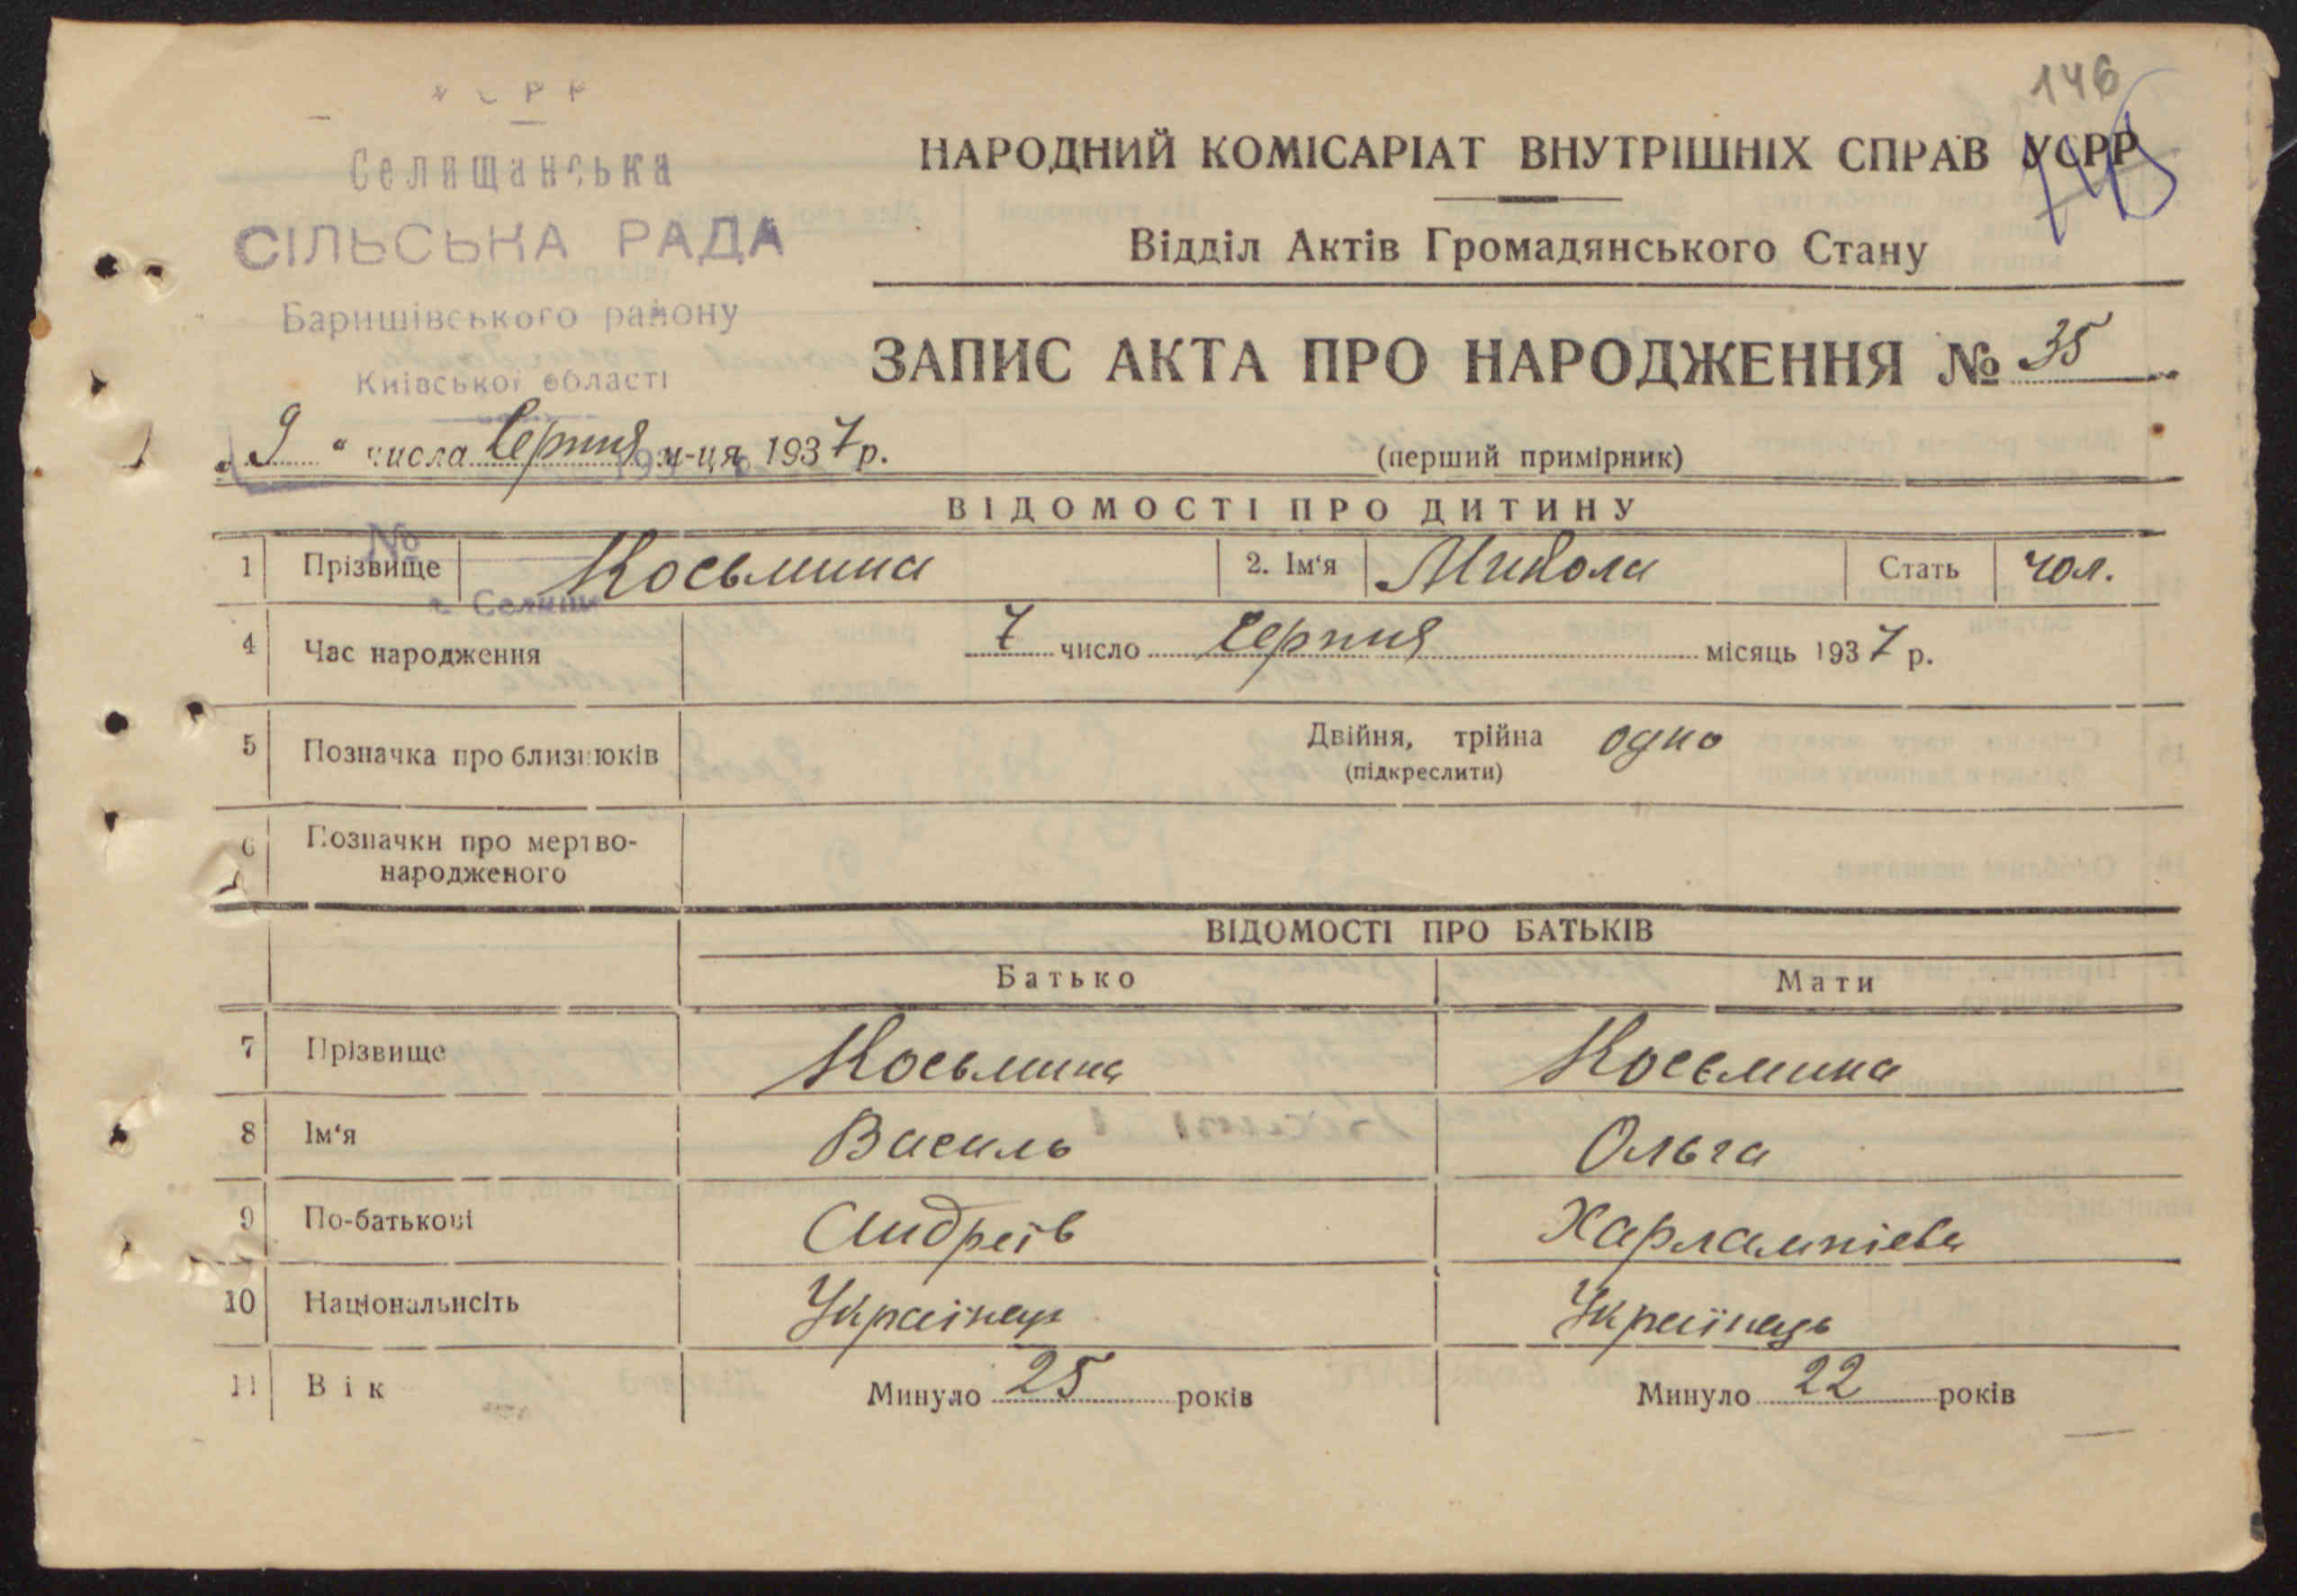 146
УСРР
Селищанська
СІЛЬСЬКА РАДА
Баришівського району
Київської області
НАРОДНИЙ КОМІСАРІАТ ВНУТРІШНІХ СПРАВ УСРР
Відділ Актів Громадянського Стану
ЗАПИС АКТА ПРО НАРОДЖЕННЯ № 35
„ 9 “ числа Серпня м-ця 1937 р.
(перший примірник)
№
с. Селище
ВІДОМОСТІ ПРО ДИТИНУ
1 Прізвище Косьмина 2. Ім‘я Микола Стать чол.
4 Час народження 7 число Серпня місяць 1937 р.
5 Позначка про близнюків Двійня, трійна одно
(підкреслити)
6 Позначки про мертво-
народженого
ВІДОМОСТІ ПРО БАТЬКІВ
Батько Мати
7 Прізвище Косьмина Косьмина
8 Ім‘я Василь Ольга
9 По-батькові Андреїв Харлампієва
10 Національнсіть Українець Українець
11 Вік Минуло 25 років Минуло 22 років